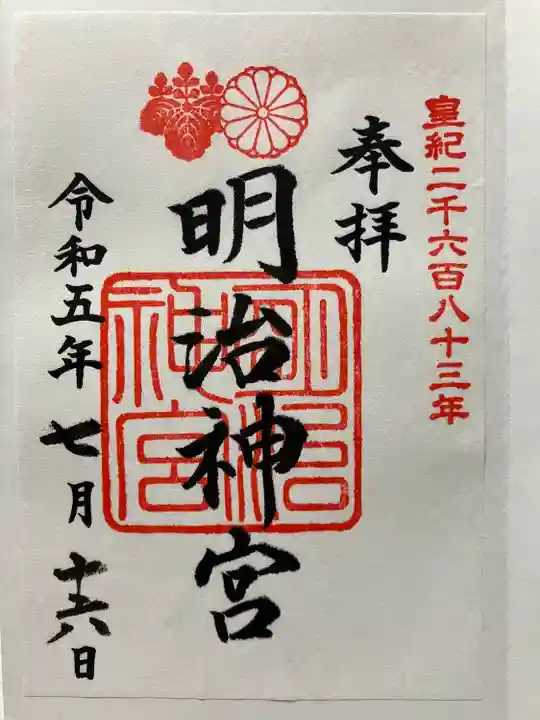 皇紀二千六百八十三年
奉拝
明治神宮
明治神宮
令和五年七月十六日